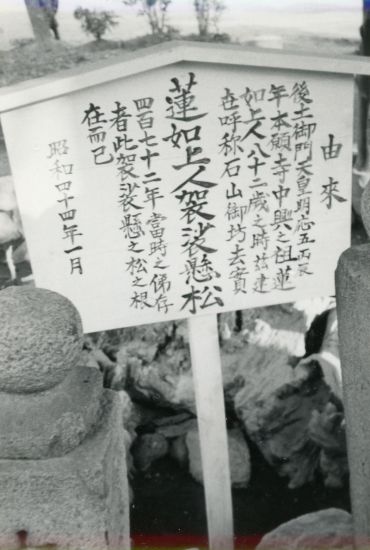 由來
後土御門天皇明応五丙辰
年本願寺中興之祖蓮
如上人八十二歳之時茲建
在呼称石山御坊去實
蓮如上人袈裟懸松
四百七十二年當時之俤存
者此袈裟懸之松之根
在而己
昭和四十四年一月